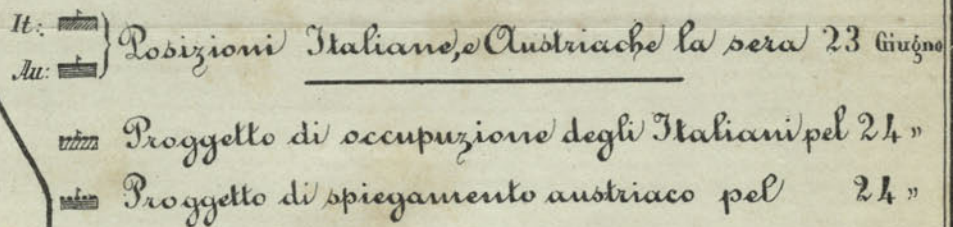 It: } Posizioni Italiane, e Austriache la sera 23 Giugno
Au:
Proggetto di occupuzione degli Italiani pel 24 "
Proggetto di spiegamento austriaco pel 24 "